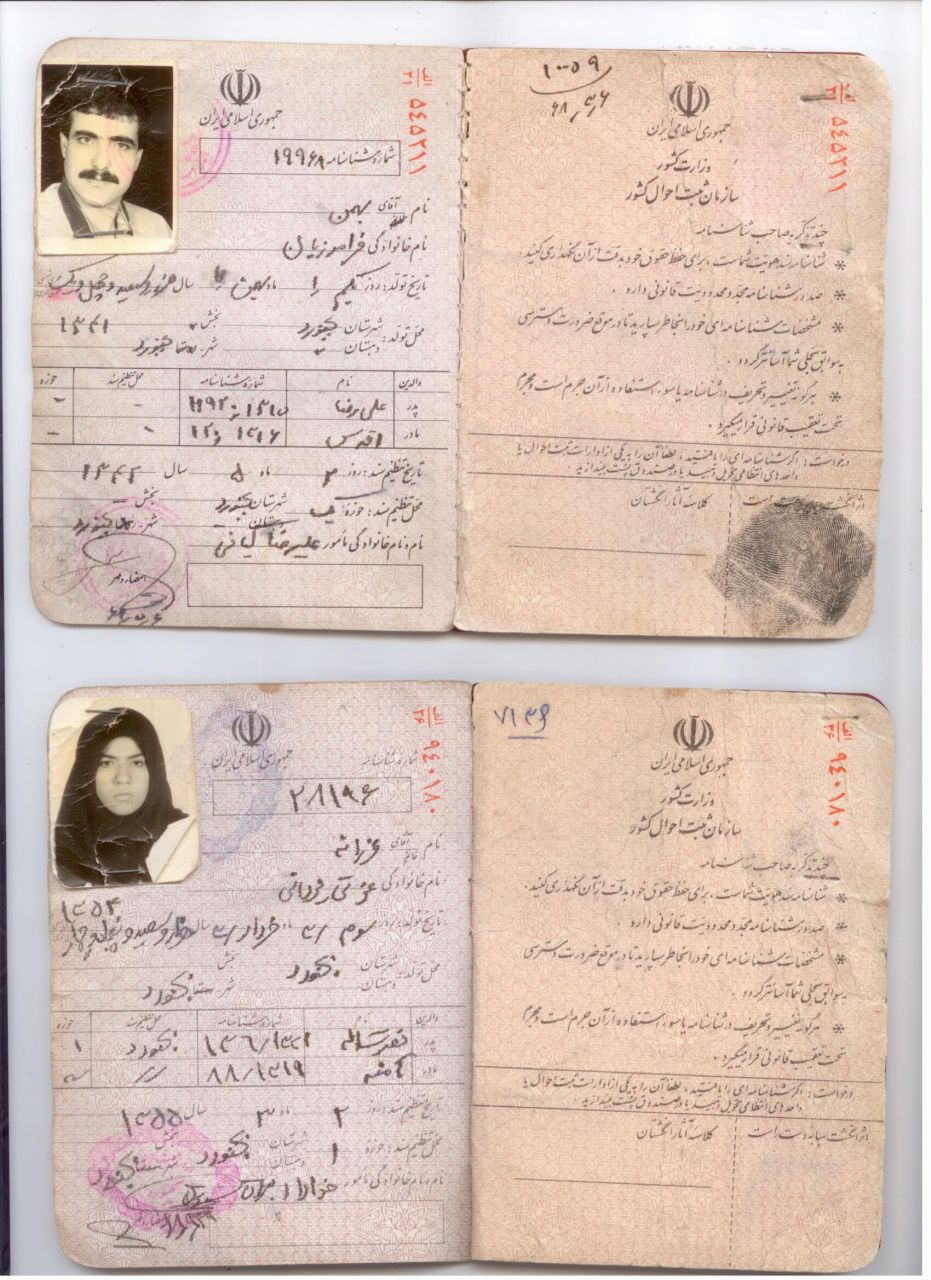 جمهوری اسلامی ایران
الف
۳۱
۵۴۵۲۱۱
شماره شناسنامه ۱۹۹۶۸
نام آقای خانم بهمن
نام خانوادگی فرامرزیان
تاریخ تولد: روز یکم ماه بهمن سال هزار و سیصد و چهل و یک
۱۳۴۱
محل تولد: شهرستان بجنورد بخش
دهستان شهر بجنورد
والدین نام شماره شناسنامه محل تنظیم سند حوزه
پدر علیرضا
مادر اقدس
تاریخ تنظیم سند: روز ۲ ماه ۵ سال ۱۳۴۲
محل تنظیم سند: حوزه شهرستان بجنورد بخش
دهستان شهر بجنورد
نام و نام خانوادگی مأمور علیرضا کیانی
امضاء و مهر
۱۰۰۵۹
جمهوری اسلامی ایران
الف
۳۱
۵۴۵۲۱۱
وزارت کشور
سازمان ثبت احوال کشور
چند تذکر به صاحب شناسنامه
* شناسنامه سند هویت شماست، برای حفظ حقوق خود بدقت از آن نگهداری کنید.
* صدور شناسنامه مجدد محدودیت قانونی دارد.
* مشخصات شناسنامه ای خود را بخاطر بسپارید تا در موقع ضرورت دسترسی
به سوابق سجلی شما آسانتر گردد.
* هرگونه تغییر و تحریف در شناسنامه یا سوء استفاده از آن جرم است و مجرم
تحت تعقیب قانونی قرار میگیرد.
درخواست: اگر شناسنامه ای را یافتید، لطفاً آن را به یکی از ادارات ثبت احوال یا
واحدهای انتظامی تحویل دهید یا در صندوق پست بیندازید.
اثر انگشت سبابه دست است
کلاسه آثار انگشتان
جمهوری اسلامی ایران
الف
۳۶
۹۴۰۱۸۰
شماره شناسنامه
۲۸۱۹۶
نام آقای خانم فرزانه
نام خانوادگی
۱۳۵۴
تاریخ تولد: روز سوم ماه خرداد سال هزار و سیصد و پنجاه و چهار
محل تولد: شهرستان بجنورد بخش
دهستان شهر بجنورد
والدین نام شماره شناسنامه محل تنظیم سند حوزه
پدر بجنورد ۱
مادر آمنه ۸۸/۱۳۱۹
تاریخ تنظیم سند: روز ۲ ماه ۳ سال ۱۳۵۵
محل تنظیم سند: حوزه ۱ شهرستان بجنورد بخش
دهستان شهر بجنورد
نام و نام خانوادگی مأمور
۷۱۳۹
جمهوری اسلامی ایران
الف
۳۶
۹۴۰۱۸۰
وزارت کشور
سازمان ثبت احوال کشور
چند تذکر به صاحب شناسنامه
* شناسنامه سند هویت شماست، برای حفظ حقوق خود بدقت از آن نگهداری کنید.
* صدور شناسنامه مجدد محدودیت قانونی دارد.
* مشخصات شناسنامه ای خود را بخاطر بسپارید تا در موقع ضرورت دسترسی
به سوابق سجلی شما آسانتر گردد.
* هرگونه تغییر و تحریف در شناسنامه یا سوء استفاده از آن جرم است و مجرم
تحت تعقیب قانونی قرار میگیرد.
درخواست: اگر شناسنامه ای را یافتید، لطفاً آن را به یکی از ادارات ثبت احوال یا
واحدهای انتظامی تحویل دهید یا در صندوق پست بیندازید.
اثر انگشت سبابه دست است
کلاسه آثار انگشتان